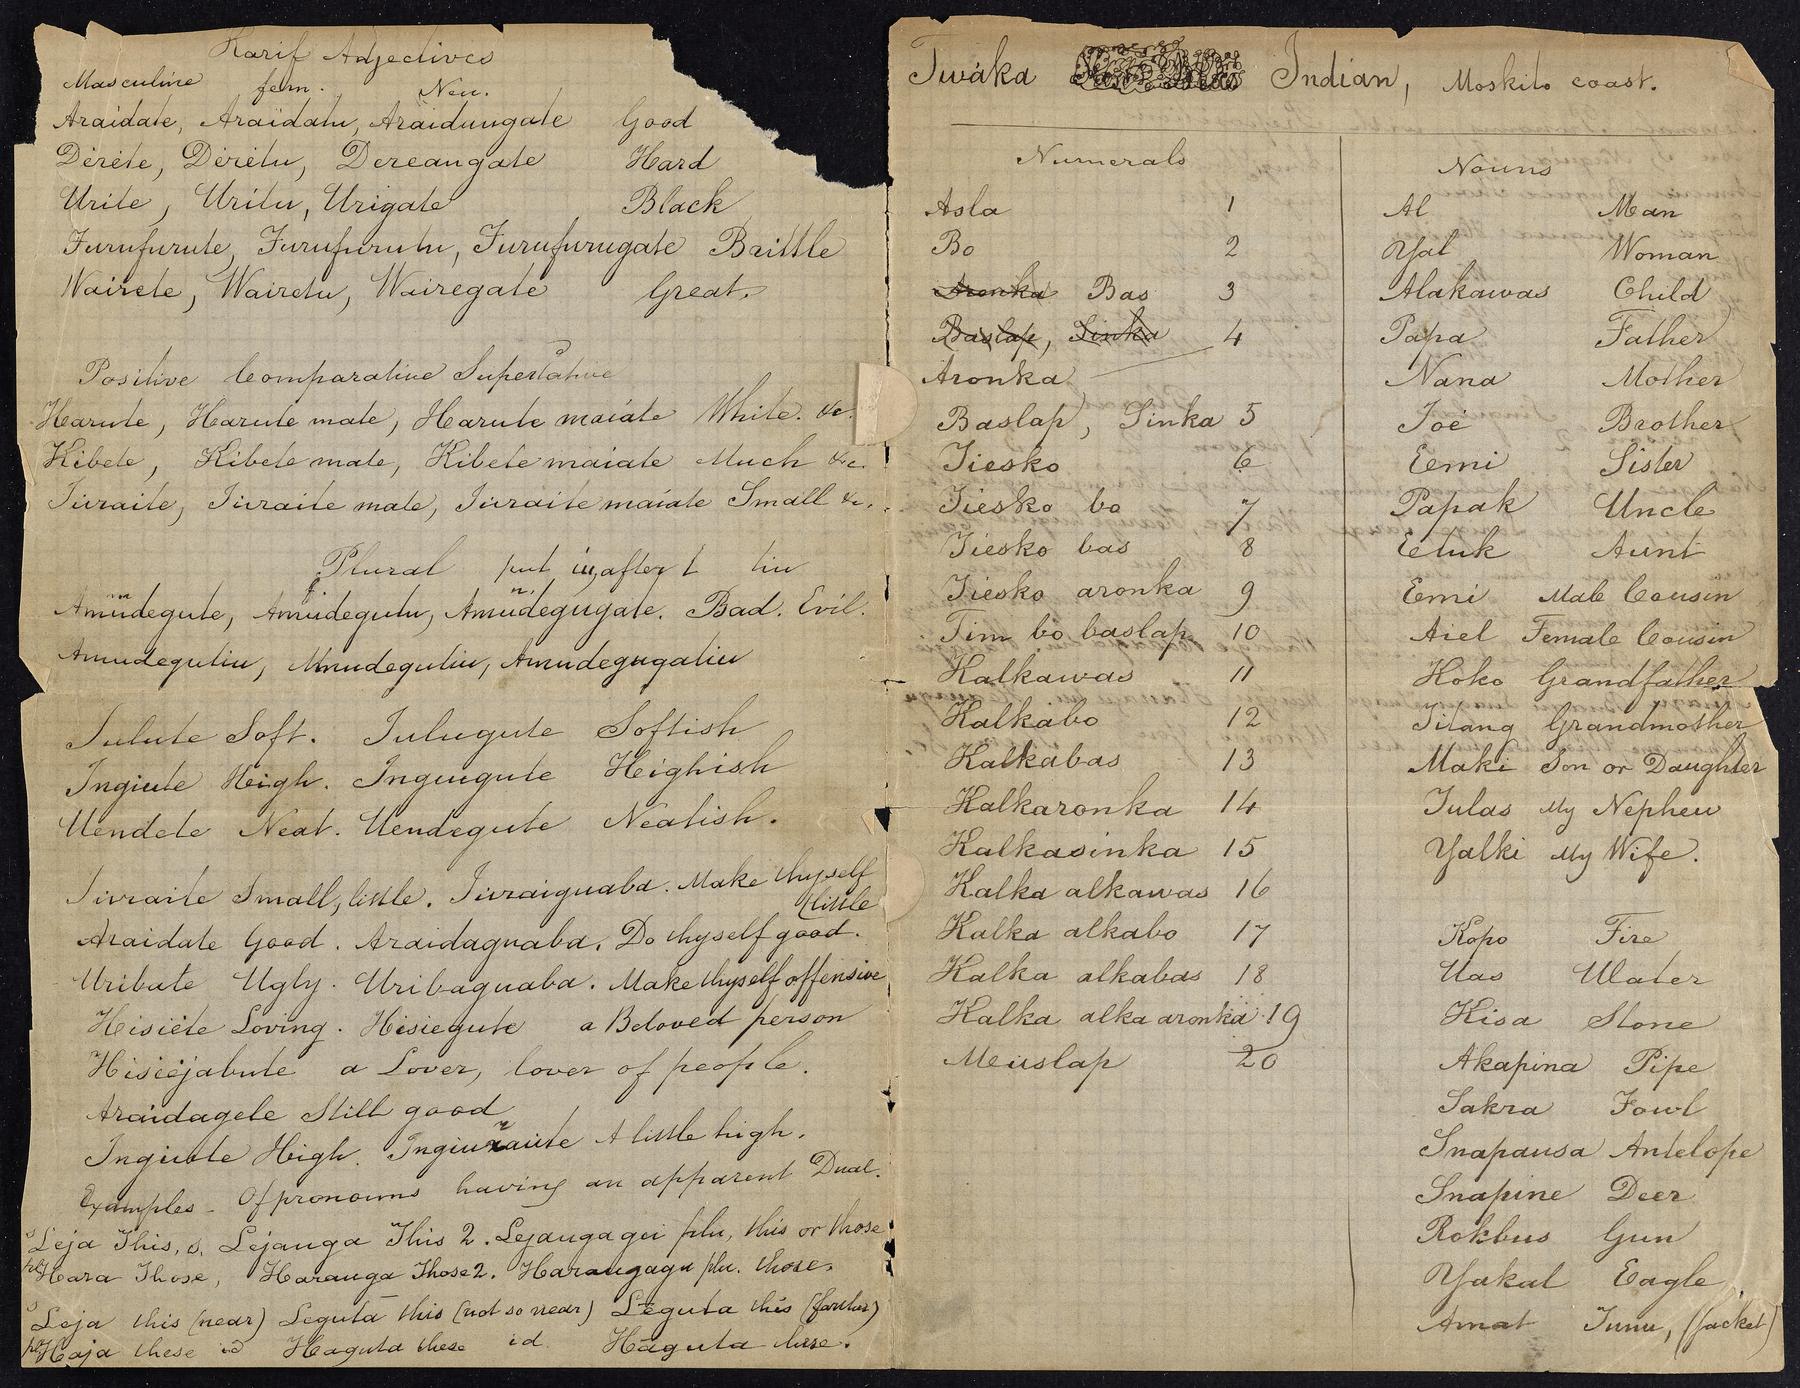 Karif Adjectives
Masculine fem. Neu.
Araidate, Araidatu, Araidungate Good
Dèréte, Dèrétu, Dereangate Hard
Urite, Uritu, Urigate Black
Furufurute, Furufurutu, Furufurugate Brittle
Wairete, Wairetu, Wairegate Great.
Positive Comparative Superlative
Harute, Harute mate, Harute maiate White. &c.
Kibete, Kibete mate, Kibete maiate Much &c.
Iuraite, Iuraite mate, Iuraite maiate Small &c.
Plural put iu, after t tiu
Amüdegute, Amüdegutu, Amüdegugate. Bad. Evil.
Amudegutiu, Amudegutiu, Amudegugatiu
Sulute Soft. Sulugute Softish
Ingiute Heigh. Inguigute Heighish
Uendete Neat. Uendegute Neatish.
Iuraite Small, little. Iuraiguaba. Make thyself
(little
Araidate Good. Araidaguaba. Do thyself good.
Uribate Ugly. Uribaguaba. Make thyself offensive
Hisiéte Loving. Hisiegute a Beloved person
Hisiejabute a Lover, lover of people.
Araidagele Still good
Ingiute High. Ingiuraiite A little high.
Examples - Of pronouns having an apparent Dual.
s Leja This, s. Lejanga This 2. Lejangagei plu, this or those
pl Hara Those, Haranga Those 2. Harangagu plu. those.
s Leja this (near) Leguta this (not so near) Léguta this (farther)
pl Haja these id Haguta these id. Háguta these.
Twáka Indian, Moskito coast.
Numerals
Asla 1
Bo 2
Aronka Bas 3
Baslap, Sinka 4
Aronka
Baslap, Sinka 5
Tiesko 6
Tiesko bo 7
Tiesko bas 8
Tiesko aronka 9
Tim bo baslap 10
Kalkawas 11
Kalkabo 12
Kalkabas 13
Kalkaronka 14
Kalkasinka 15
Kalka alkawas 16
Kalka alkabo 17
Kalka alkabas 18
Kalka alka aronka 19
Meuslap 20
Nouns
Al Man
Yal Woman
Alakawas Child
Papa Father
Nana Mother
Ioé Brother
Eemi Sister
Papak Uncle
Etuk Aunt
Eemi Male Cousin
Aiel Female Cousin
Koko Grandfather
Titang Grandmother
Maki Son or Daughter
Tulas My Nepheu
Yalki My Wife.
Kopo Fire
Uas Water
Kisa Stone
Akapina Pipe
Sakra Fowl
Snapausa Antelope
Snapine Deer
Rokbus Gun
Yakal Eagle
Amat Tunu, (jacket)